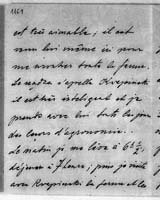 1161
est très aimable; il est
venu lui même ici pour
me montrer toute la ferme.
Le s'appelle Krepinski
il est très intelligent et je
prends avec lui tous les jours
des cours d'agronomie.
Le matin je me lève à 6 h ½
déjeune à 7 heures; puis je vais
avec Krepinski la ferme et les